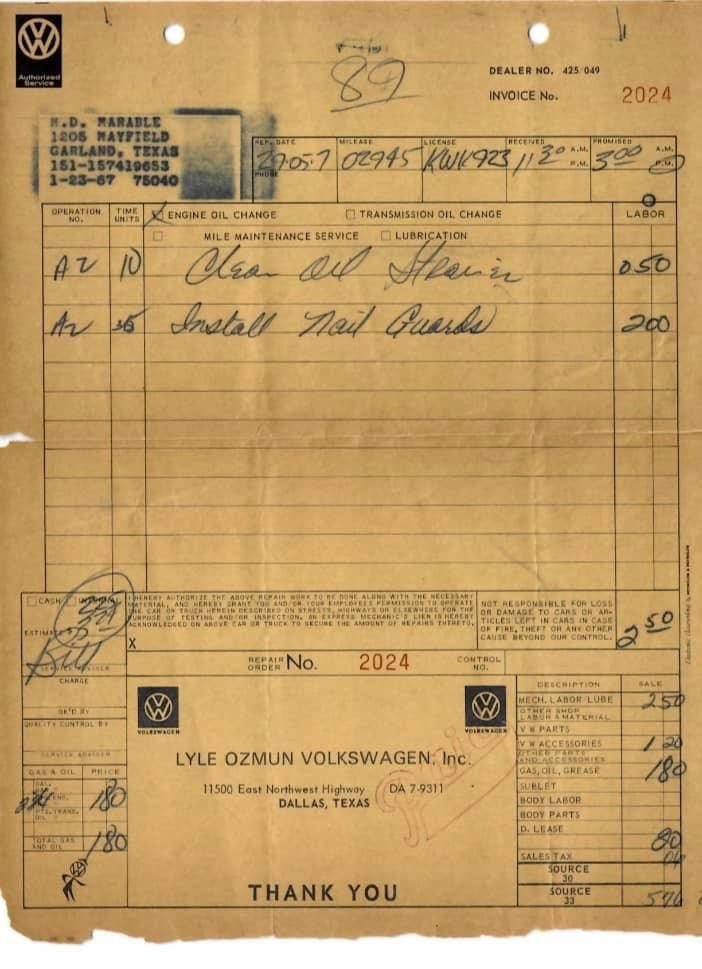 Authorized
Service
89
DEALER NO. 425/049
INVOICE No. 2024
M.D. MARABLE
1205 MAYFIELD
GARLAND, TEXAS
151-157419653
1-23-67 75040
REP. DATE MILEAGE LICENSE RECEIVED PROMISED
02945 KWK923 11 30 A.M. P.M. 3:00 A.M. P.M.
PHONE
OPERATION NO. TIME UNITS ENGINE OIL CHANGE TRANSMISSION OIL CHANGE LABOR
MILE MAINTENANCE SERVICE LUBRICATION
A2 10 Clean Oil Strainer 050
A2 Install Nail Guards 200
CASH
I HEREBY AUTHORIZE THE ABOVE REPAIR WORK TO BE DONE ALONG WITH THE NECESSARY
MATERIAL, AND HEREBY GRANT YOU AND/OR YOUR EMPLOYEES PERMISSION TO OPERATE
THE CAR OR TRUCK HEREIN DESCRIBED ON STREETS, HIGHWAYS OR ELSEWHERE FOR THE
PURPOSE OF TESTING AND/OR INSPECTION. AN EXPRESS MECHANIC'S LIEN IS HEREBY
ACKNOWLEDGED ON ABOVE CAR OR TRUCK TO SECURE THE AMOUNT OF REPAIRS THERETO.
X
NOT RESPONSIBLE FOR LOSS
OR DAMAGE TO CARS OR AR-
TICLES LEFT IN CARS IN CASE
OF FIRE, THEFT OR ANY OTHER
CAUSE BEYOND OUR CONTROL.
2 50
ESTIMATE
SERVICE ADVISER
REPAIR ORDER No. 2024 CONTROL NO.
CHARGE
OK'D BY
QUALITY CONTROL BY
SERVICE ADVISER
GAS & OIL PRICE
180
TOTAL GAS AND OIL 180
VOLKSWAGEN VOLKSWAGEN
LYLE OZMUN VOLKSWAGEN, Inc.
11500 East Northwest Highway DA 7-9311
DALLAS, TEXAS
Paid
THANK YOU
DESCRIPTION SALE
MECH. LABOR/LUBE 250
OTHER SHOP LABOR & MATERIAL
V W PARTS
V W ACCESSORIES 1 20
OTHER PARTS AND ACCESSORIES
GAS, OIL, GREASE 180
SUBLET
BODY LABOR
BODY PARTS
D. LEASE
SALES TAX
SOURCE 30
SOURCE 33